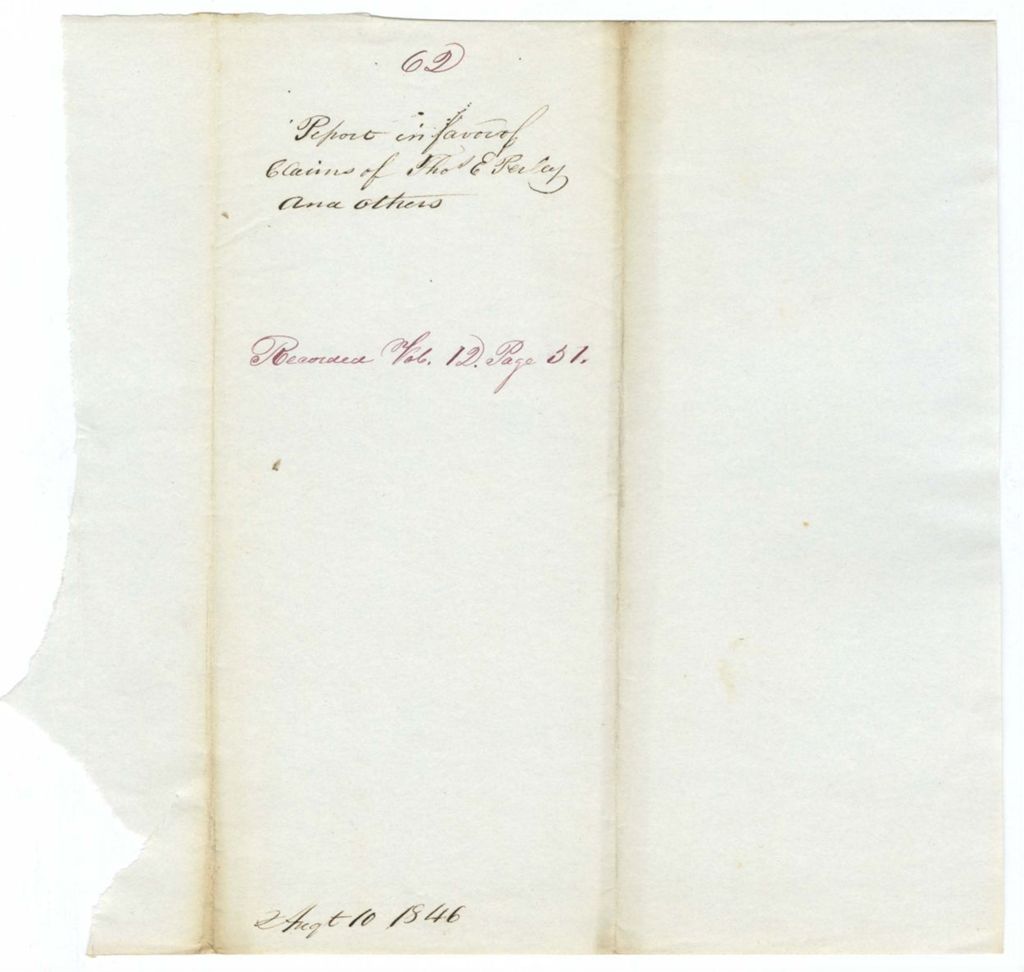 62
Report in favor of
Claims of Thos E
and others
Recorded Vol. 12. Page 51.
Augt 10 1846